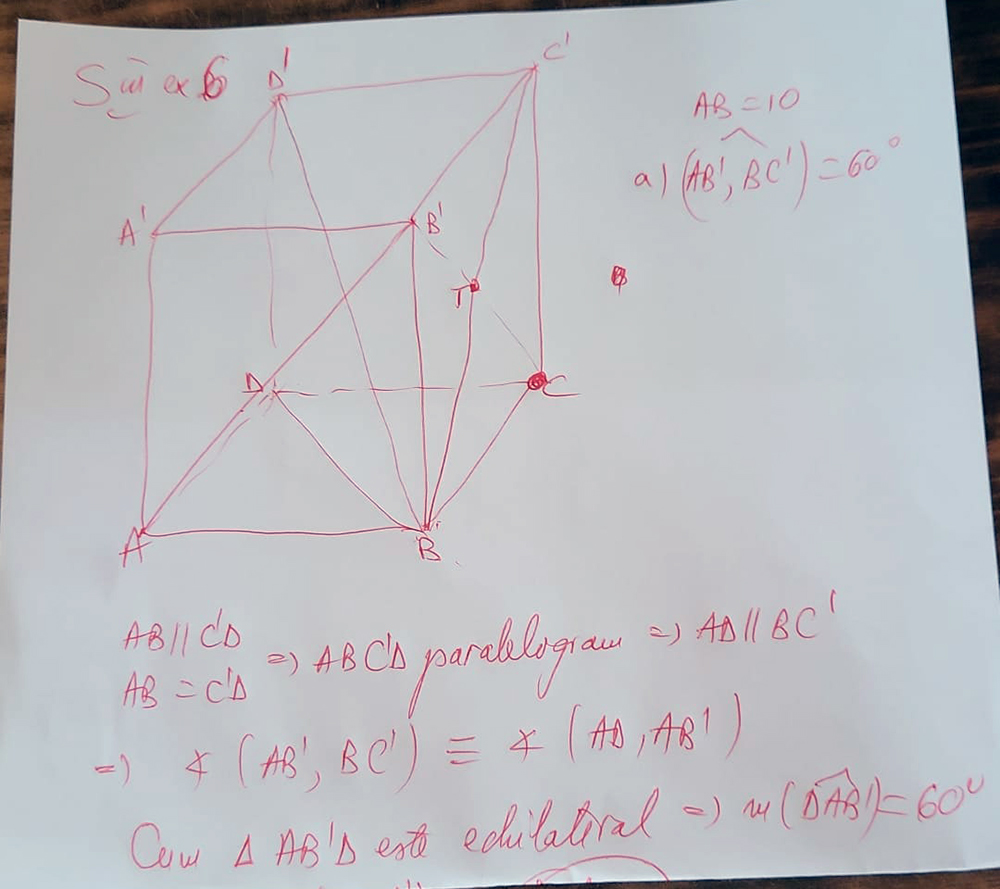 SIII ex 6
D'
C'
AB = 10
a) (AB', BC') = 60°
A'
B'
T
D
C
A
B
AB // C'D
AB = C'D
=> ABC'D paralelogram => AD // BC'
=> ∢ (AB', BC') ≡ ∢ (AD, AB')
Cum Δ AB'D este echilateral => m(DAB') = 60°